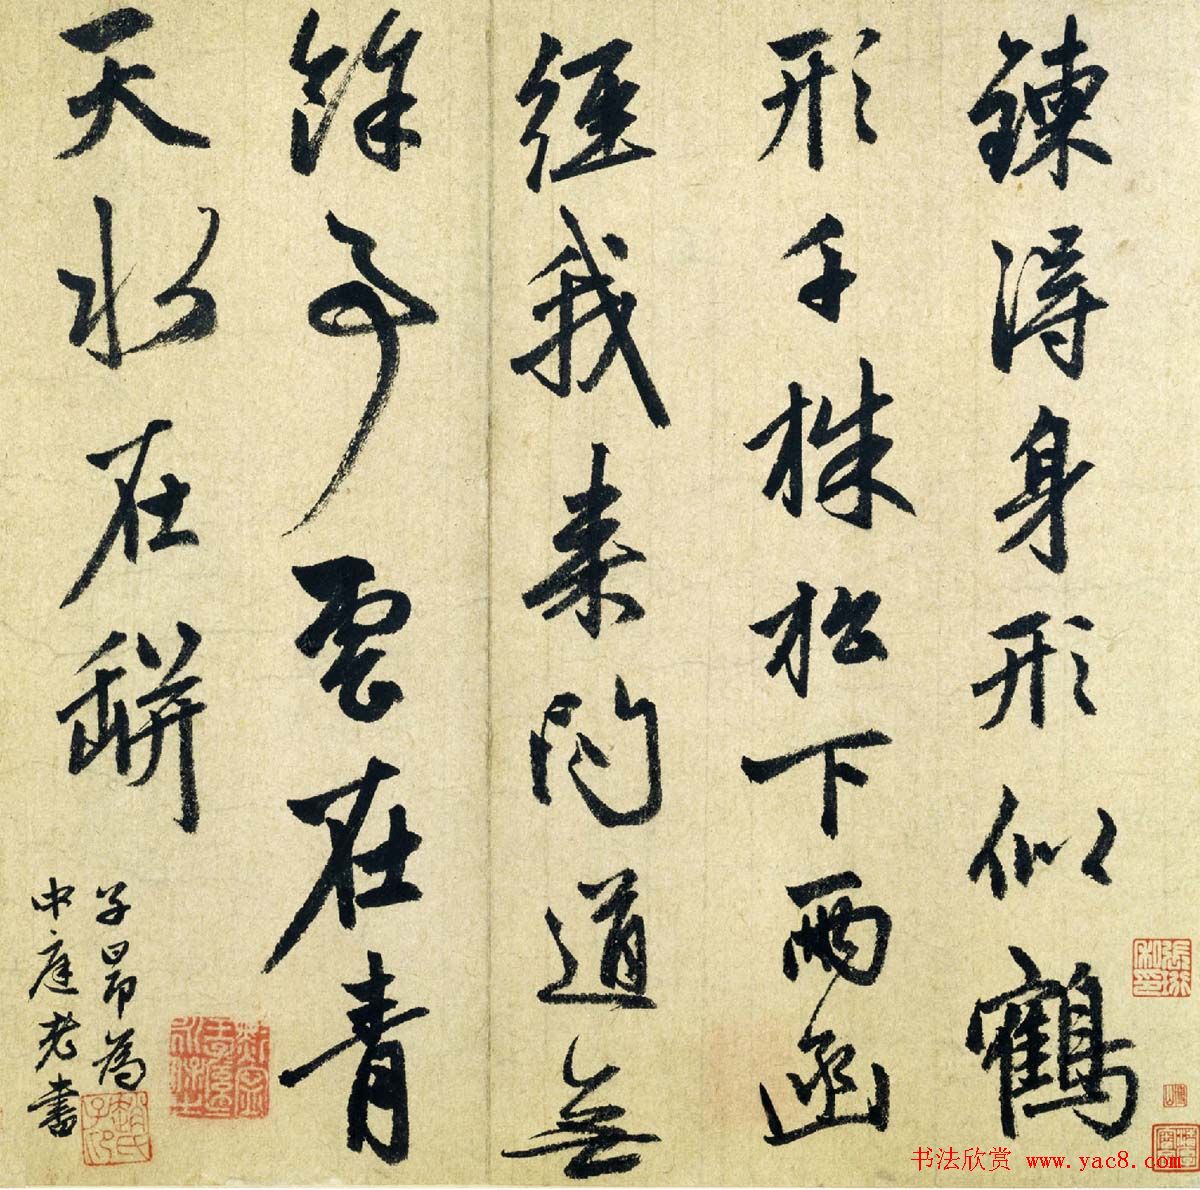 鍊得身形似鶴
形千株松下兩函
經我来問道無
餘事雲在青
天水在缾
子昂為
中庭老書
趙氏子印
书法欣赏 www.yac8.com